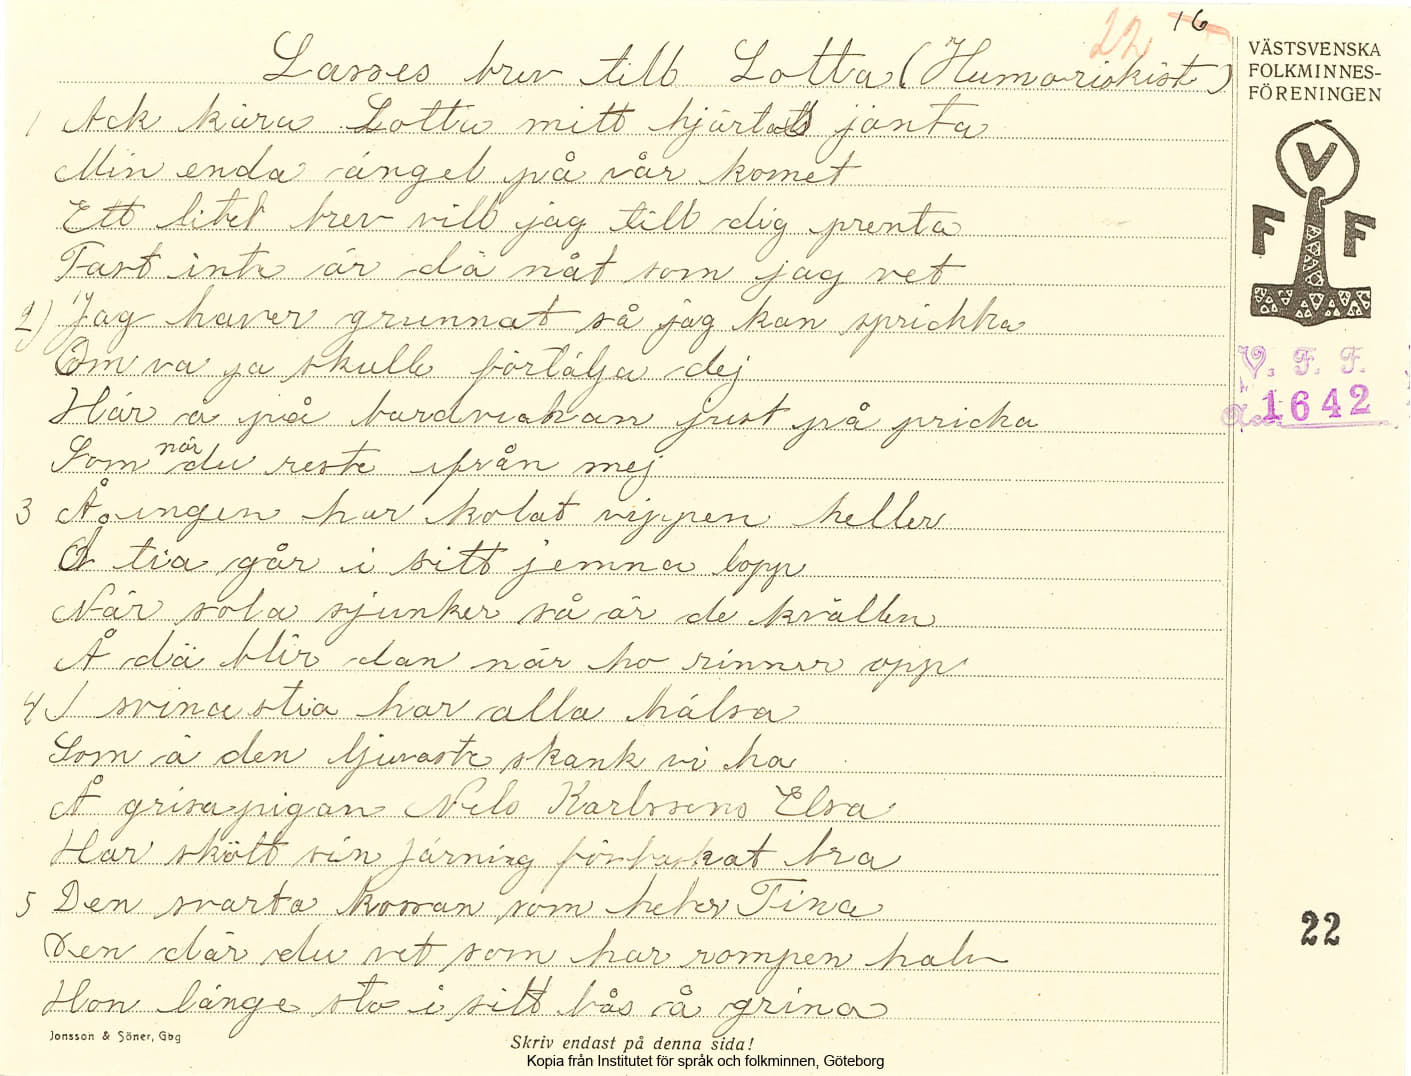 22 16
Lasses brev till Lotta (Humoriskist)
1 Ack kära Lotta mitt hjärtats jänta
Min enda ängel på vår komet
Ett litet brev vill jag till dig prenta
Fast inte är dä nåt som jag vet
2) Jag haver grunnat så jag kan sprickka
Om va ja skulle förtälja dej
Här ä på bondviskan just på pricka
Som när du reste ifrån mej
3 Å ingen har kolat vippen heller
Å tia går i sitt jemna lopp
När sola sjunker så är de kvällen
Å dä blir dan när ho rinner opp
4 I svinastia har alla hälsa
Som ä den ljuvaste skänk vi ha
Å grisapigan Nels Karlssons Elsa
Har skött sin järning förbaskat bra
5 Den svarta kossan som heter Fina
Den där du vet som har rompen halv
Hon länge sto i sitt bås å grina
VÄSTSVENSKA
FOLKMINNES-
FÖRENINGEN
V
F F
V. F. F.
Acc. 1642
22
Jonsson & Söner, Gbg
Skriv endast på denna sida!
Kopia från Institutet för språk och folkminnen, Göteborg